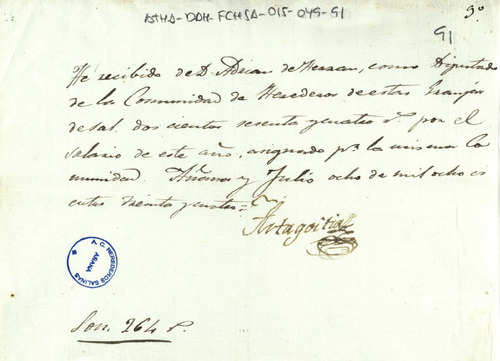 ASHA-DAH-FCHSA-015-049-91
91
3º
He recibido de D. Adrian de Herran, como Diputado
de la Comunidad de Herederos de estas Granjas
de sal, dos cientos sesenta y cuatro r. por el
salario de este año, asignado pr. la misma Co
munidad. Añana y Julio ocho de mil ocho ci
entos treinta y
Artagoitia
A. C. HEREDEROS SALINAS
AÑANA
Son 264 r.